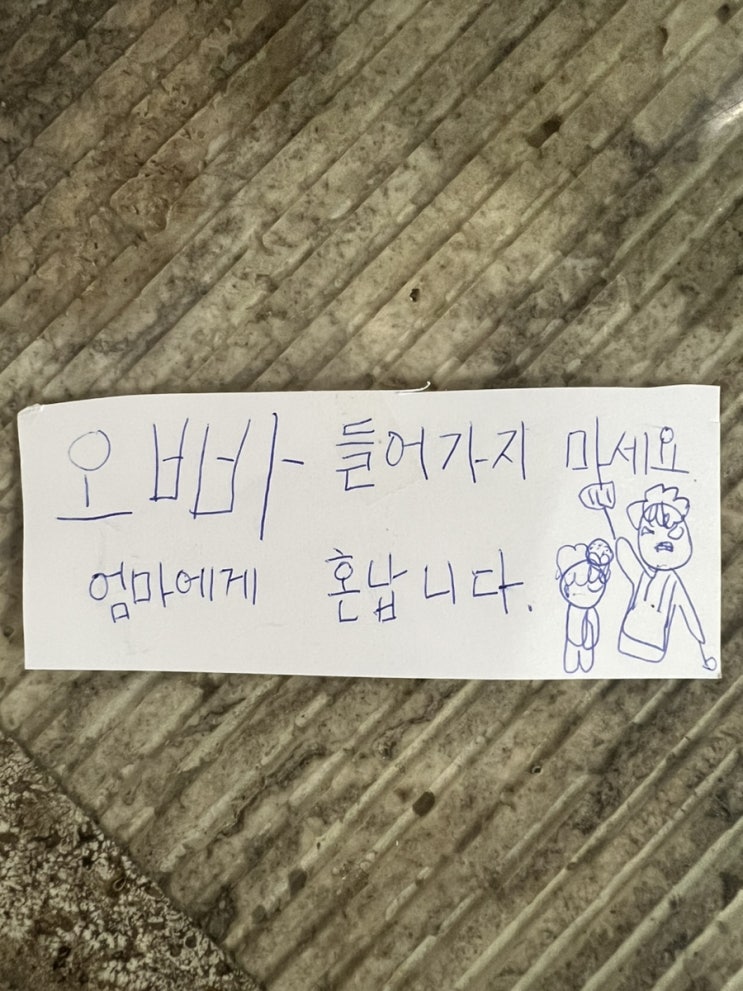 오빠 들어가지 마세요
엄마에게 혼납니다.